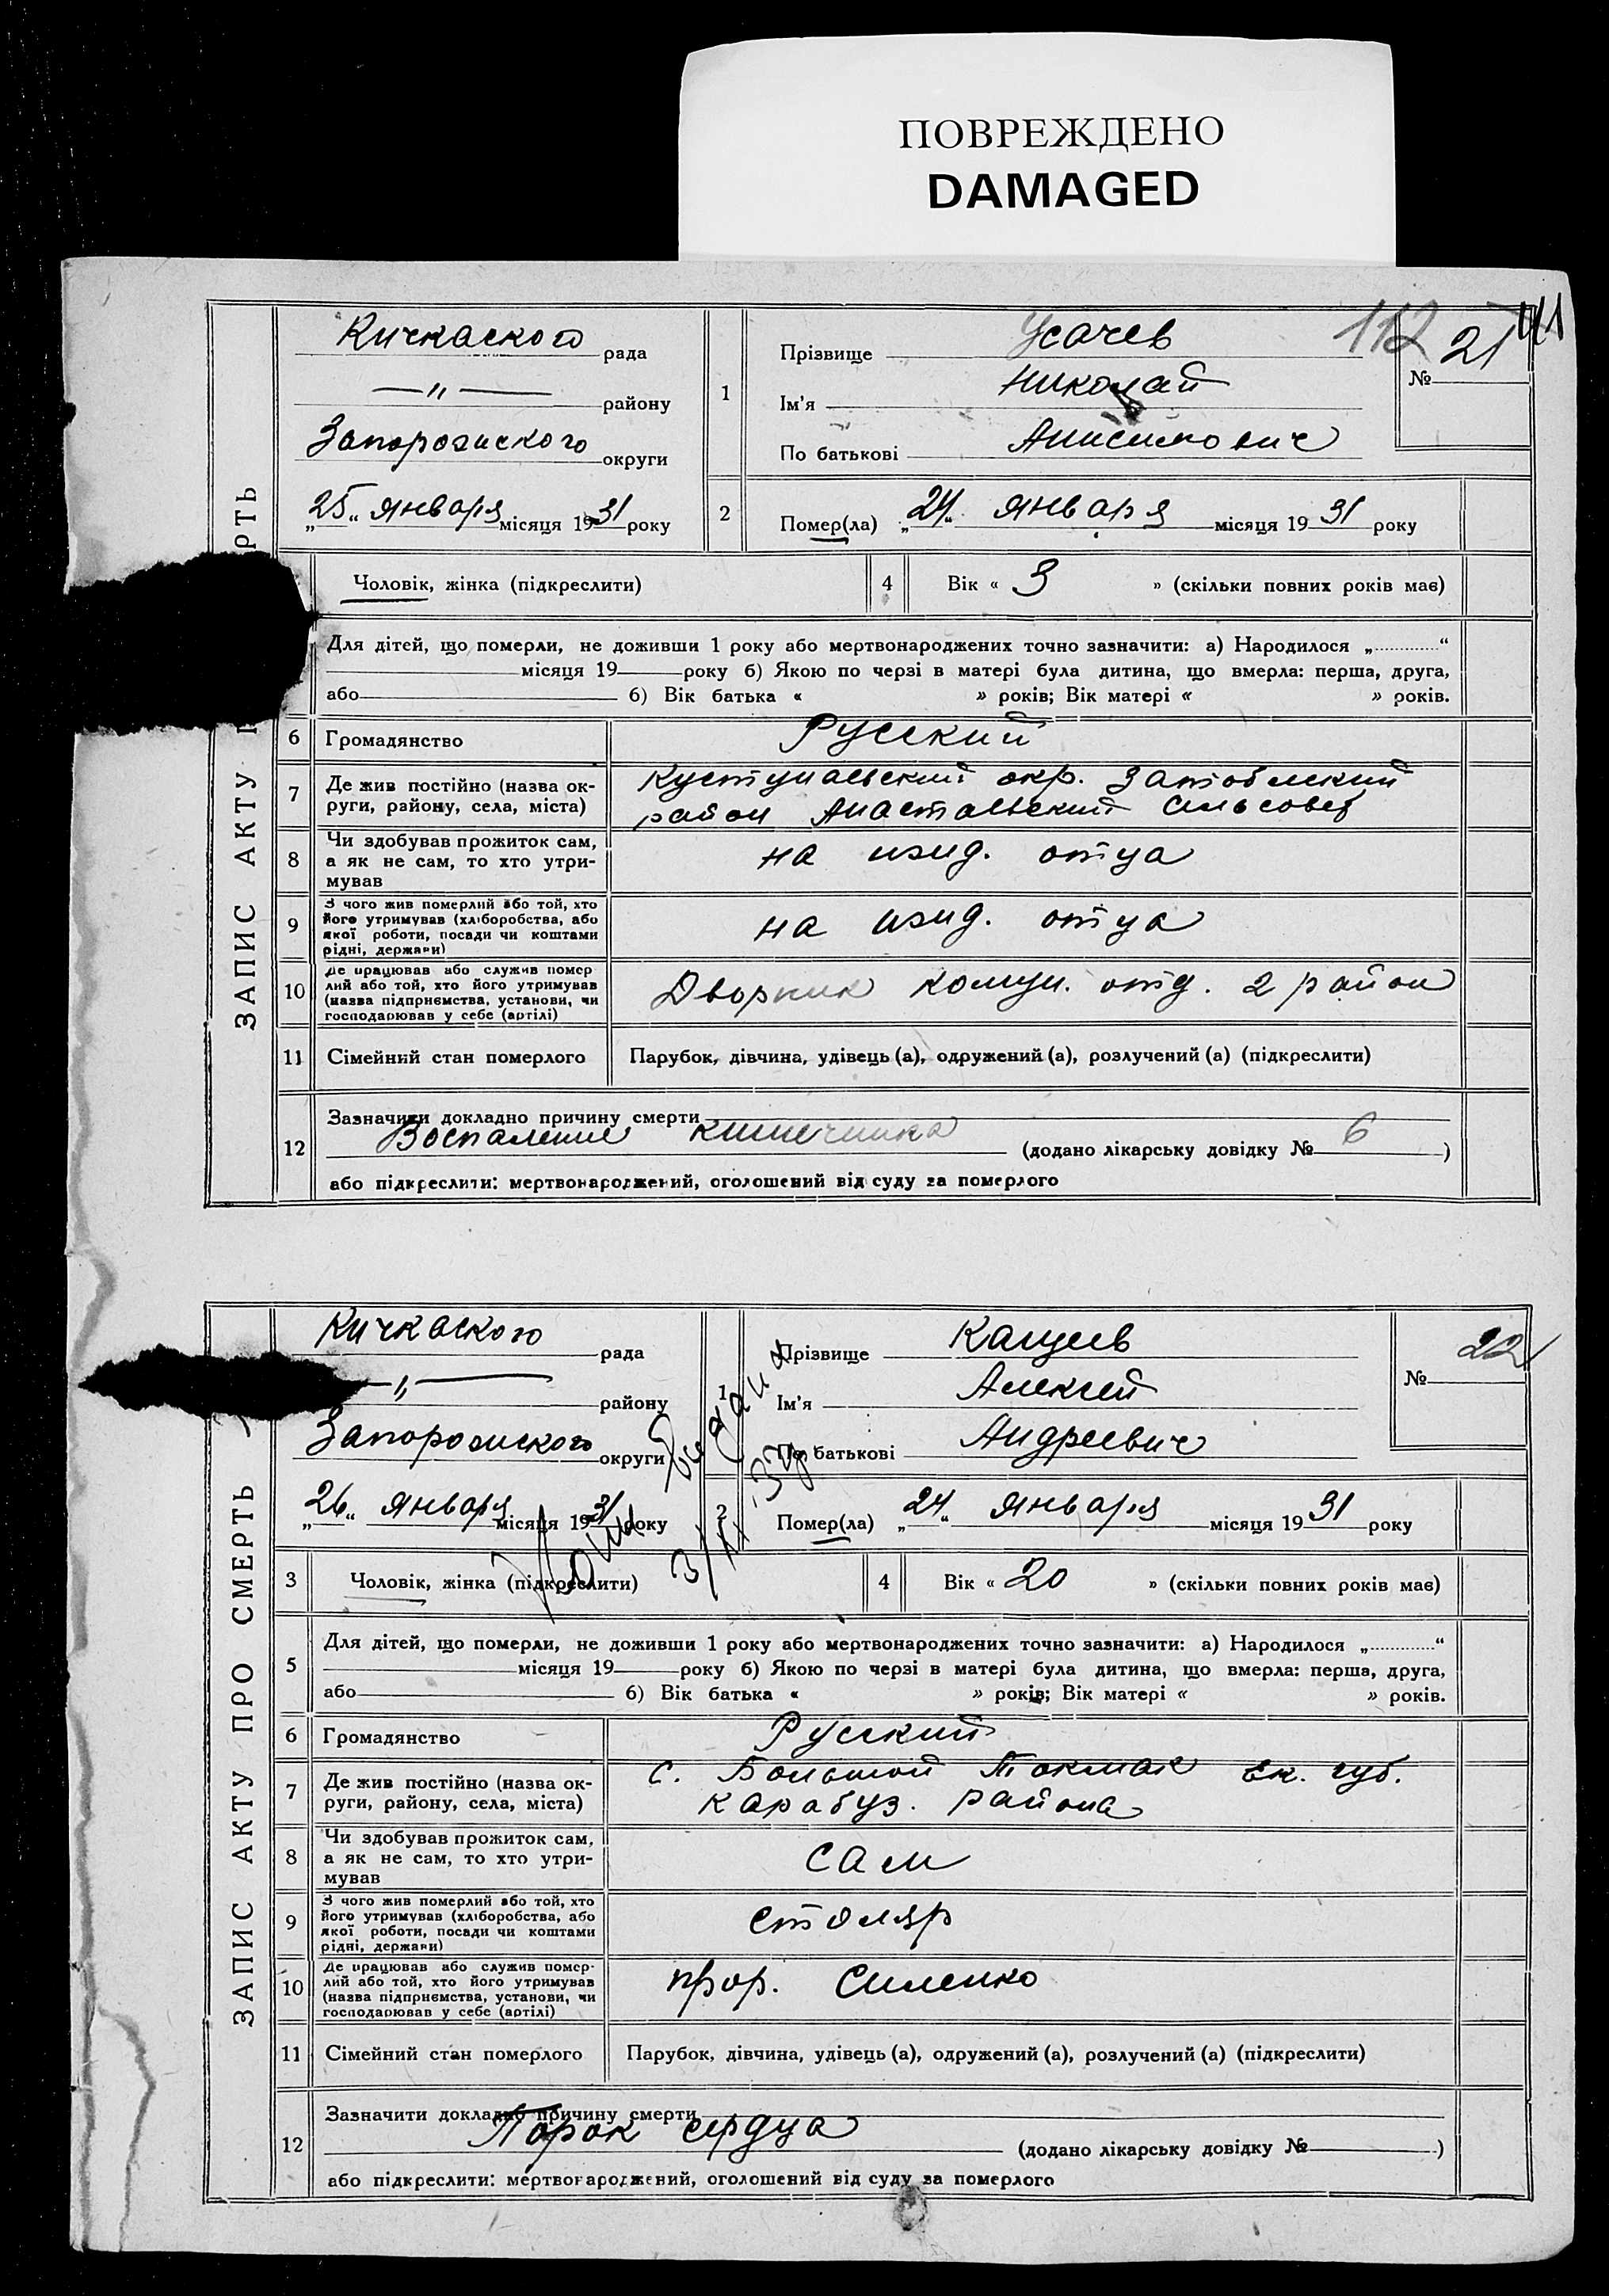 ПОВРЕЖДЕНО
DAMAGED
112 141
ЗАПИС АКТУ РТЬ
Кичкаского рада
—"— району
Запорожского округи
„25“ января місяця 1931 року
1 Прізвище Усачев
Ім'я Николай
По батькові Анисимович
№ 21
2 Помер(ла) „24“ января місяця 1931 року
Чоловік, жінка (підкреслити) 4 Вік « 3 » (скільки повних років має)
Для дітей, що померли, не доживши 1 року або мертвонароджених точно зазначити: а) Народилося „ “
місяця 19 року б) Якою по черзі в матері була дитина, що вмерла: перша, друга,
або б) Вік батька « » років; Вік матері « » років.
6 Громадянство Русский
7 Де жив постійно (назва ок-
руги, району, села, міста)
окр.
район сельсовет
8 Чи здобував прожиток сам,
а як не сам, то хто утри-
мував
на ижд. отца
9 З чого жив померлий або той, хто
його утримував (хліборобства, або
якої роботи, посади чи коштами
рідні, держави)
на ижд. отца
10 Де працював або служив помер
лий або той, хто його утримував
(назва підприємства, установи, чи
господарював у себе (артілі)
Дворник комун. отд. 2 район
11 Сімейний стан померлого Парубок, дівчина, удівець (а), одружений (а), розлучений (а) (підкреслити)
12 Зазначити докладно причину смерти
Воспаление кишечника (додано лікарську довідку № 6 )
або підкреслити: мертвонароджений, оголошений від суду за померлого
ЗАПИС АКТУ ПРО СМЕРТЬ
Кичкаского рада
—"— району
Запорожского округи
„26“ января місяця 1931 року
1 Прізвище Кащеев
Ім'я Алексей
По батькові Андреевич
№ 22
2 Помер(ла) „24“ января місяця 1931 року
3 Чоловік, жінка (підкреслити) 4 Вік « 20 » (скільки повних років має)
5 Для дітей, що померли, не доживши 1 року або мертвонароджених точно зазначити: а) Народилося „ “
місяця 19 року б) Якою по черзі в матері була дитина, що вмерла: перша, друга,
або б) Вік батька « » років; Вік матері « » років.
6 Громадянство Русский
7 Де жив постійно (назва ок-
руги, району, села, міста)
с. Большой Токмак Ек. губ.
Карабуз. района
8 Чи здобував прожиток сам,
а як не сам, то хто утри-
мував
сам
9 З чого жив померлий або той, хто
його утримував (хліборобства, або
якої роботи, посади чи коштами
рідні, держави)
столяр
10 Де працював або служив помер-
лий або той, хто його утримував
(назва підприємства, установи, чи
господарював у себе (артілі)
прор. Силенко
11 Сімейний стан померлого Парубок, дівчина, удівець (а), одружений (а), розлучений (а) (підкреслити)
12 Зазначити докладно причину смерти
Порок сердца (додано лікарську довідку № )
або підкреслити: мертвонароджений, оголошений від суду за померлого